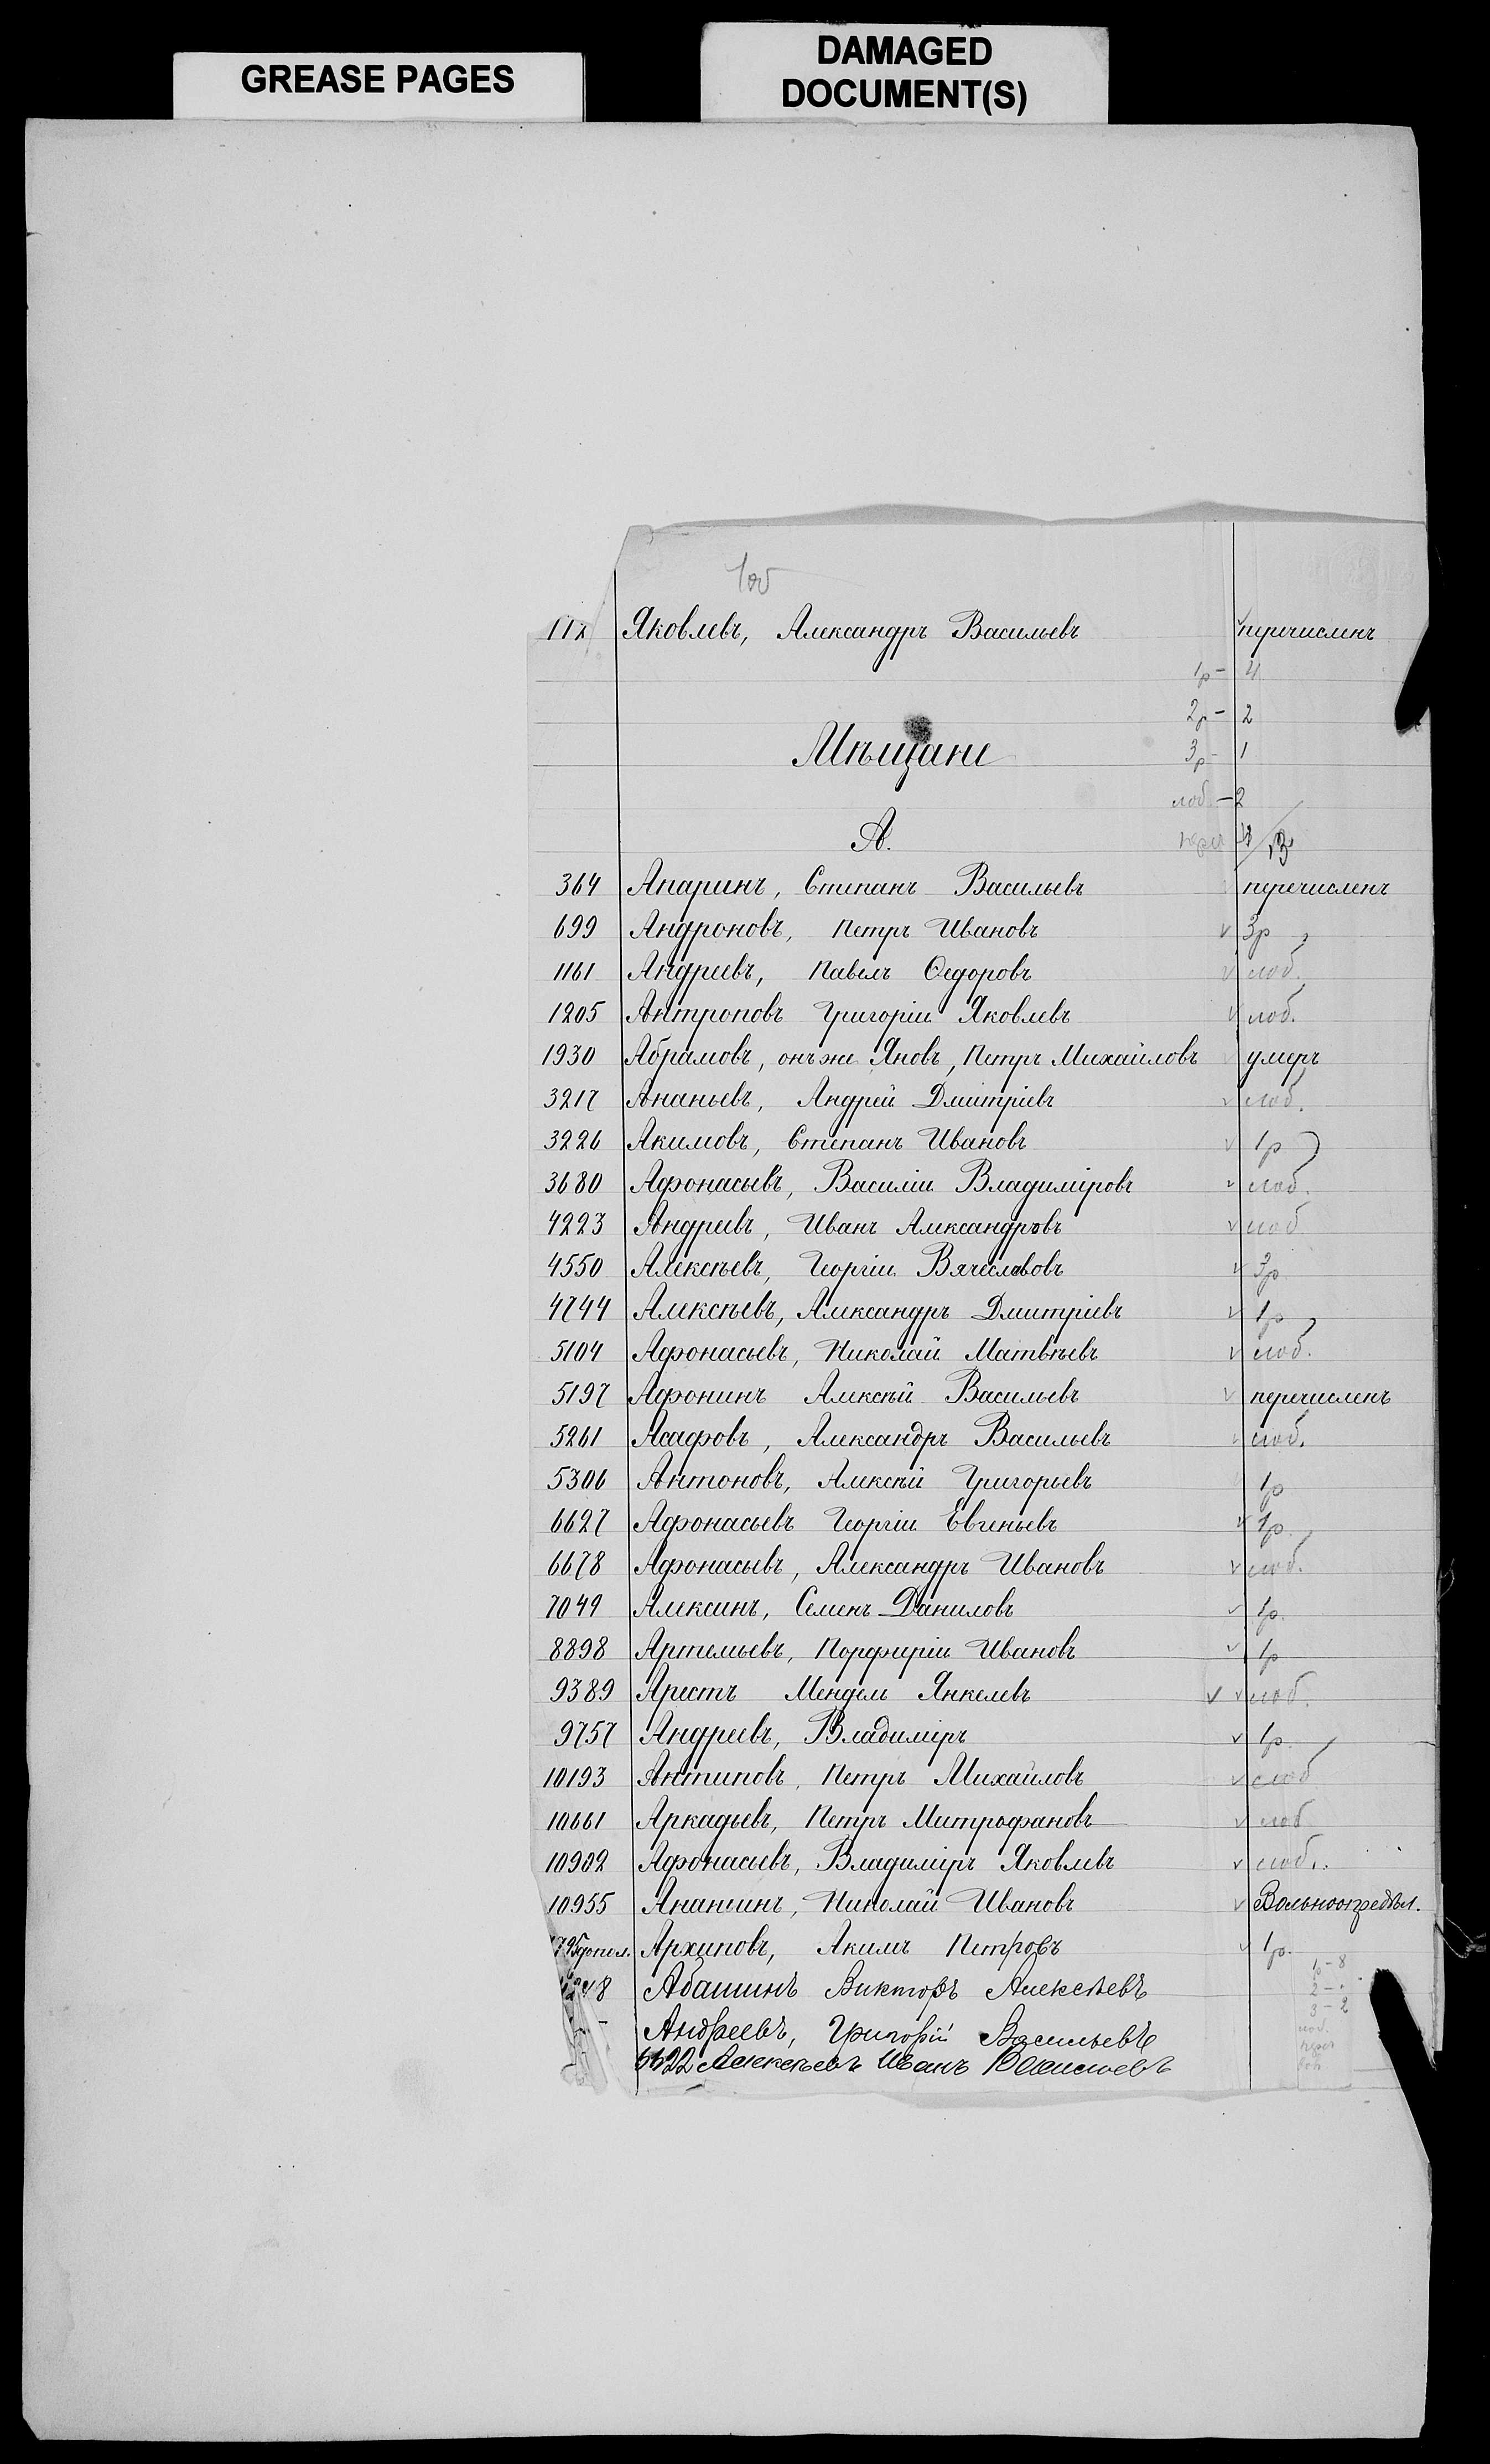 GREASE PAGES
DAMAGED
DOCUMENT(S)
Яковлевъ, Александръ Васильевъ перечисленъ
1р - 4
2р - 2
Мѣщане 3р - 1
лоб - 2
А.
364 Апаринъ, Степанъ Васильевъ перечисленъ
699 Андроновъ, Петръ Ивановъ 3р
1161 Андреевъ, Павелъ Ѳедоровъ лоб.
1205 Антроповъ Григорій Яковлевъ лоб.
1930 Абрамовъ, онъ же Яновъ, Петръ Михайловъ умеръ
3217 Ананьевъ, Андрей Дмитріевъ лоб.
3226 Акимовъ, Степанъ Ивановъ 1р
3680 Афонасьевъ, Василій Владиміровъ лоб.
4223 Андреевъ, Иванъ Александровъ лоб
4550 Алексѣевъ, Георгій Вячеславовъ 3р
4744 Алексѣевъ, Александръ Дмитріевъ 1р
5104 Афонасьевъ, Николай Матвѣевъ лоб.
5197 Афонинъ Алексѣй Васильевъ перечисленъ
5261 Асафовъ, Александръ Васильевъ лоб.
5306 Антоновъ, Алексѣй Григорьевъ 1р
6627 Афонасьевъ Георгій Евгеньевъ 1р
6678 Афонасьевъ, Александръ Ивановъ лоб.
7049 Алексинъ, Семенъ Даниловъ 1р.
8898 Артемьевъ, Порфирій Ивановъ 1р
9389 Арестъ Мендель Янкелевъ лоб.
9757 Андреевъ, Владиміръ 1р
10193 Антиповъ, Петръ Михайловъ лоб
10661 Аркадьевъ, Петръ Митрофановъ лоб
10902 Афонасьевъ, Владиміръ Яковлевъ лоб.
10955 Ананьинъ, Николай Ивановъ Вольноопредѣл.
допол. Архиповъ, Акимъ Петровъ 1р.
Абашинъ Викторъ Алексѣевъ
1р - 8
3 - 2
Андреевъ, Григорій Васильевъ
5522 Алексѣевъ Иванъ Васильевъ